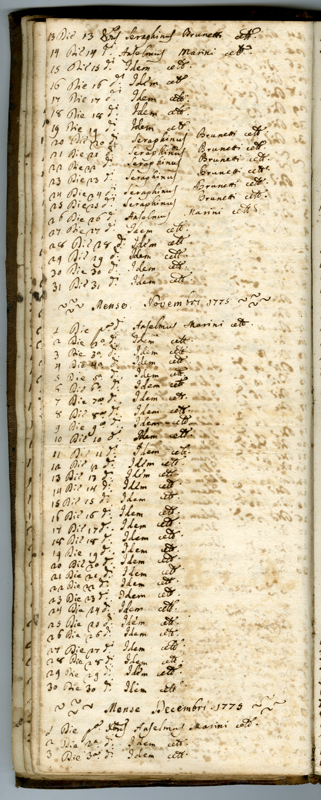 13 Die 13 Seraphinus Brunetti cett.
14 Die 14 d.ⁱ Anselmus Marini cett.
15 Die 15 d.ⁱ Idem cett.
16 Die 16 d.ⁱ Idem cett.
17 Die 17 d.ⁱ Idem cett.
18 Die 18 d.ⁱ Idem cett.
19 Die 19 d.ⁱ Idem cett.
20 Die 20 d.ⁱ Seraphinus Bruneti cett.
21 Die 21 d.ⁱ Seraphinus Bruneti cett.
22 Die 22 d.ⁱ Seraphinus Bruneti cett.
23 Die 23 d.ⁱ Seraphinus Bruneti cett.
24 Die 24 d.ⁱ Seraphinus Bruneti cett.
25 Die 25 d.ⁱ Seraphinus Bruneti cett.
26 Die 26 d.ⁱ Anselmus Marini cett.
27 Die 27 d.ⁱ Idem cett.
28 Die 28 d.ⁱ Idem cett.
29 Die 29 d.ⁱ Idem cett.
30 Die 30 d.ⁱ Idem cett.
31 Die 31 d.ⁱ Idem cett.
Mense Novembri 1775
1 Die p.ᵃ d.ⁱ Anselmus Marini cett.
2 Die 2.ᵃ d.ⁱ Idem cett.
3 Die 3.ᵃ d.ⁱ Idem cett.
4 Die 4.ᵃ d.ⁱ Idem cett.
5 Die 5.ᵃ d.ⁱ Idem cett.
6 Die 6.ᵃ d.ⁱ Idem cett.
7 Die 7.ᵃ d.ⁱ Idem cett.
8 Die 8.ᵃ d.ⁱ Idem cett.
9 Die 9.ᵃ d.ⁱ Idem cett.
10 Die 10 d.ⁱ Idem cett.
11 Die 11 d.ⁱ Idem cett.
12 Die 12 d.ⁱ Idem cett.
13 Die 13 d.ⁱ Idem cett.
14 Die 14 d.ⁱ Idem cett.
15 Die 15 d.ⁱ Idem cett.
16 Die 16 d.ⁱ Idem cett.
17 Die 17 d.ⁱ Idem cett.
18 Die 18 d.ⁱ Idem cett.
19 Die 19 d.ⁱ Idem cett.
20 Die 20 d.ⁱ Idem cett.
21 Die 21 d.ⁱ Idem cett.
22 Die 22 d.ⁱ Idem cett.
23 Die 23 d.ⁱ Idem cett.
24 Die 24 d.ⁱ Idem cett.
25 Die 25 d.ⁱ Idem cett.
26 Die 26 d.ⁱ Idem cett.
27 Die 27 d.ⁱ Idem cett.
28 Die 28 d.ⁱ Idem cett.
29 Die 29 d.ⁱ Idem cett.
30 Die 30 d.ⁱ Idem cett.
Mense Decembri 1775
1 Die p.ᵃ Xbris Anselmus Marini cett.
2 Die 2.ᵃ d.ⁱ Idem cett.
3 Die 3.ᵃ d.ⁱ Idem cett.